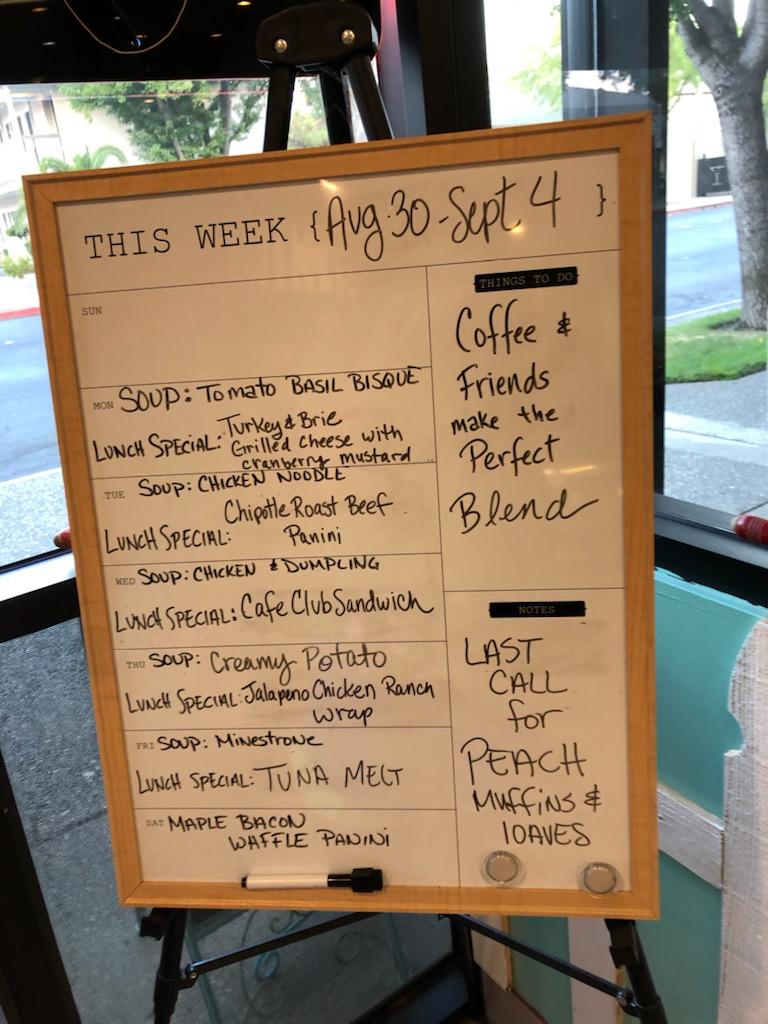 THIS WEEK { Aug. 30 - Sept 4 }
SUN
MON SOUP: Tomato BASIL BISQUE
LUNCH SPECIAL: Turkey & Brie
Grilled Cheese with
cranberry mustard
TUE SOUP: CHICKEN NOODLE
Chipotle Roast Beef
LUNCH SPECIAL: Panini
WED SOUP: CHICKEN & DUMPLING
LUNCH SPECIAL: Cafe Club Sandwich
THU SOUP: Creamy Potato
LUNCH SPECIAL: Jalapeno Chicken Ranch
wrap
FRI SOUP: Minestrone
LUNCH SPECIAL: TUNA MELT
SAT MAPLE BACON
WAFFLE PANINI
THINGS TO DO
Coffee &
Friends
make the
Perfect
Blend
NOTES
LAST
CALL
for
PEACH
Muffins &
lOAVES